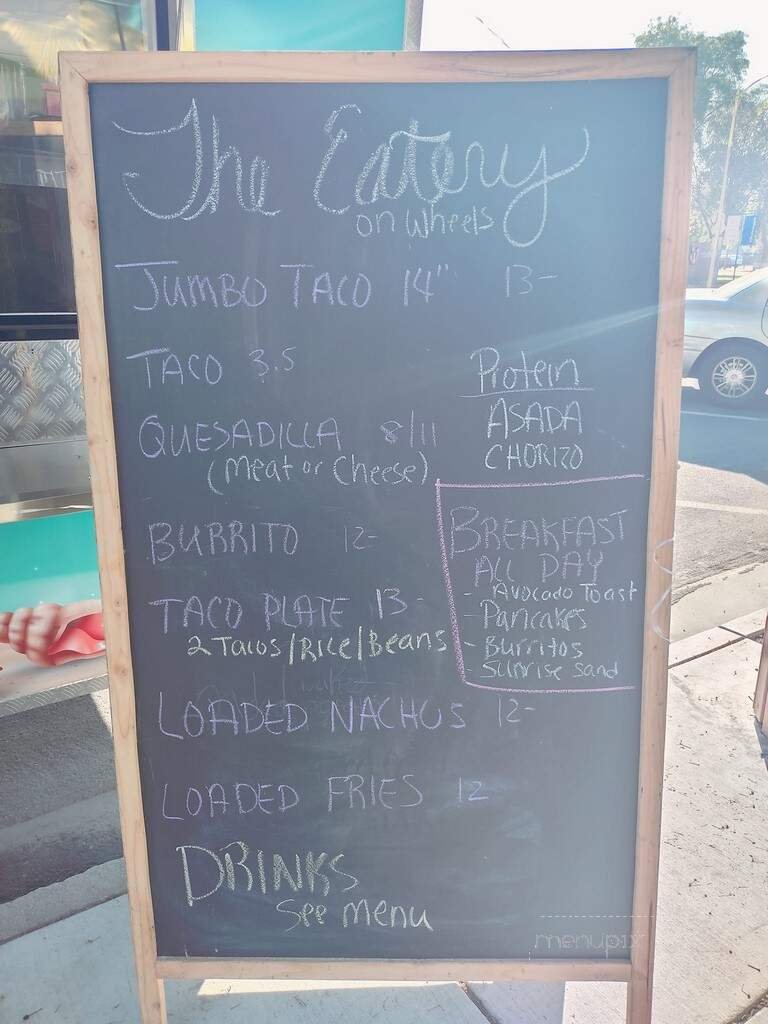 The Eatery
on wheels
JUMBO TACO 14" 13-
TACO 3.5
Protein
ASADA
CHORIZO
QUESADILLA 8/11
(Meat or Cheese)
BURRITO 12-
BREAKFAST
ALL DAY
- Avocado Toast
- Pancakes
- Burritos
- Sunrise Sand
TACO PLATE 13-
2 Tacos/Rice/Beans
LOADED NACHOS 12-
LOADED FRIES 12
DRINKS
See menu
menupix